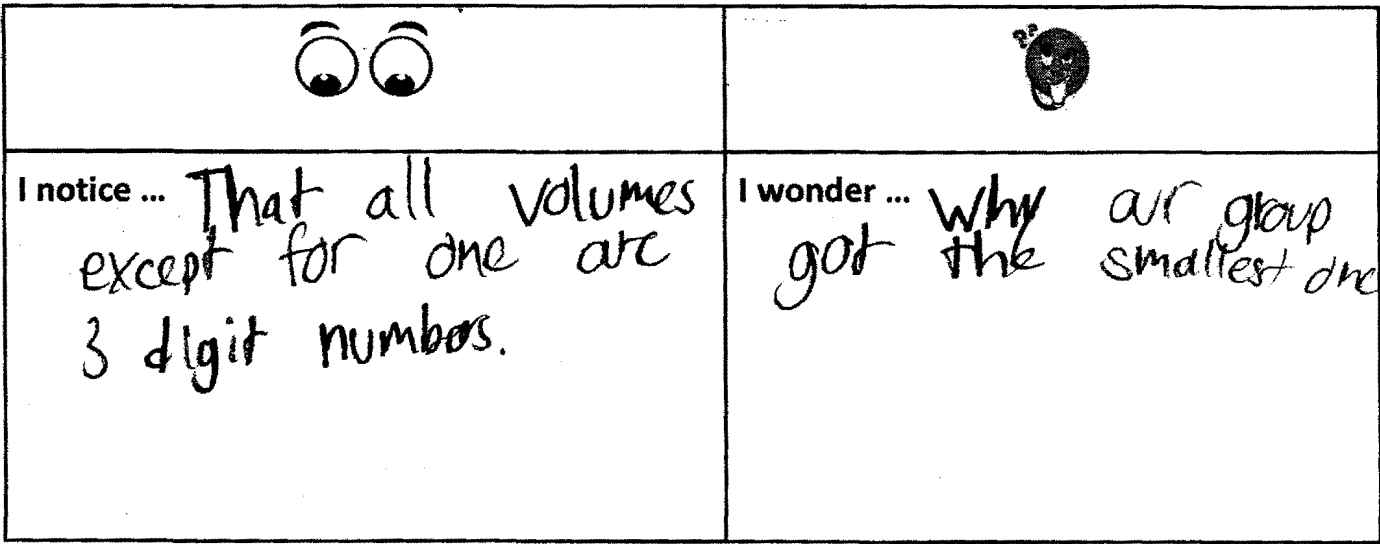 I notice ... That all volumes
except for one are
3 digit numbers.
I wonder ... Why our group
got the smallest one